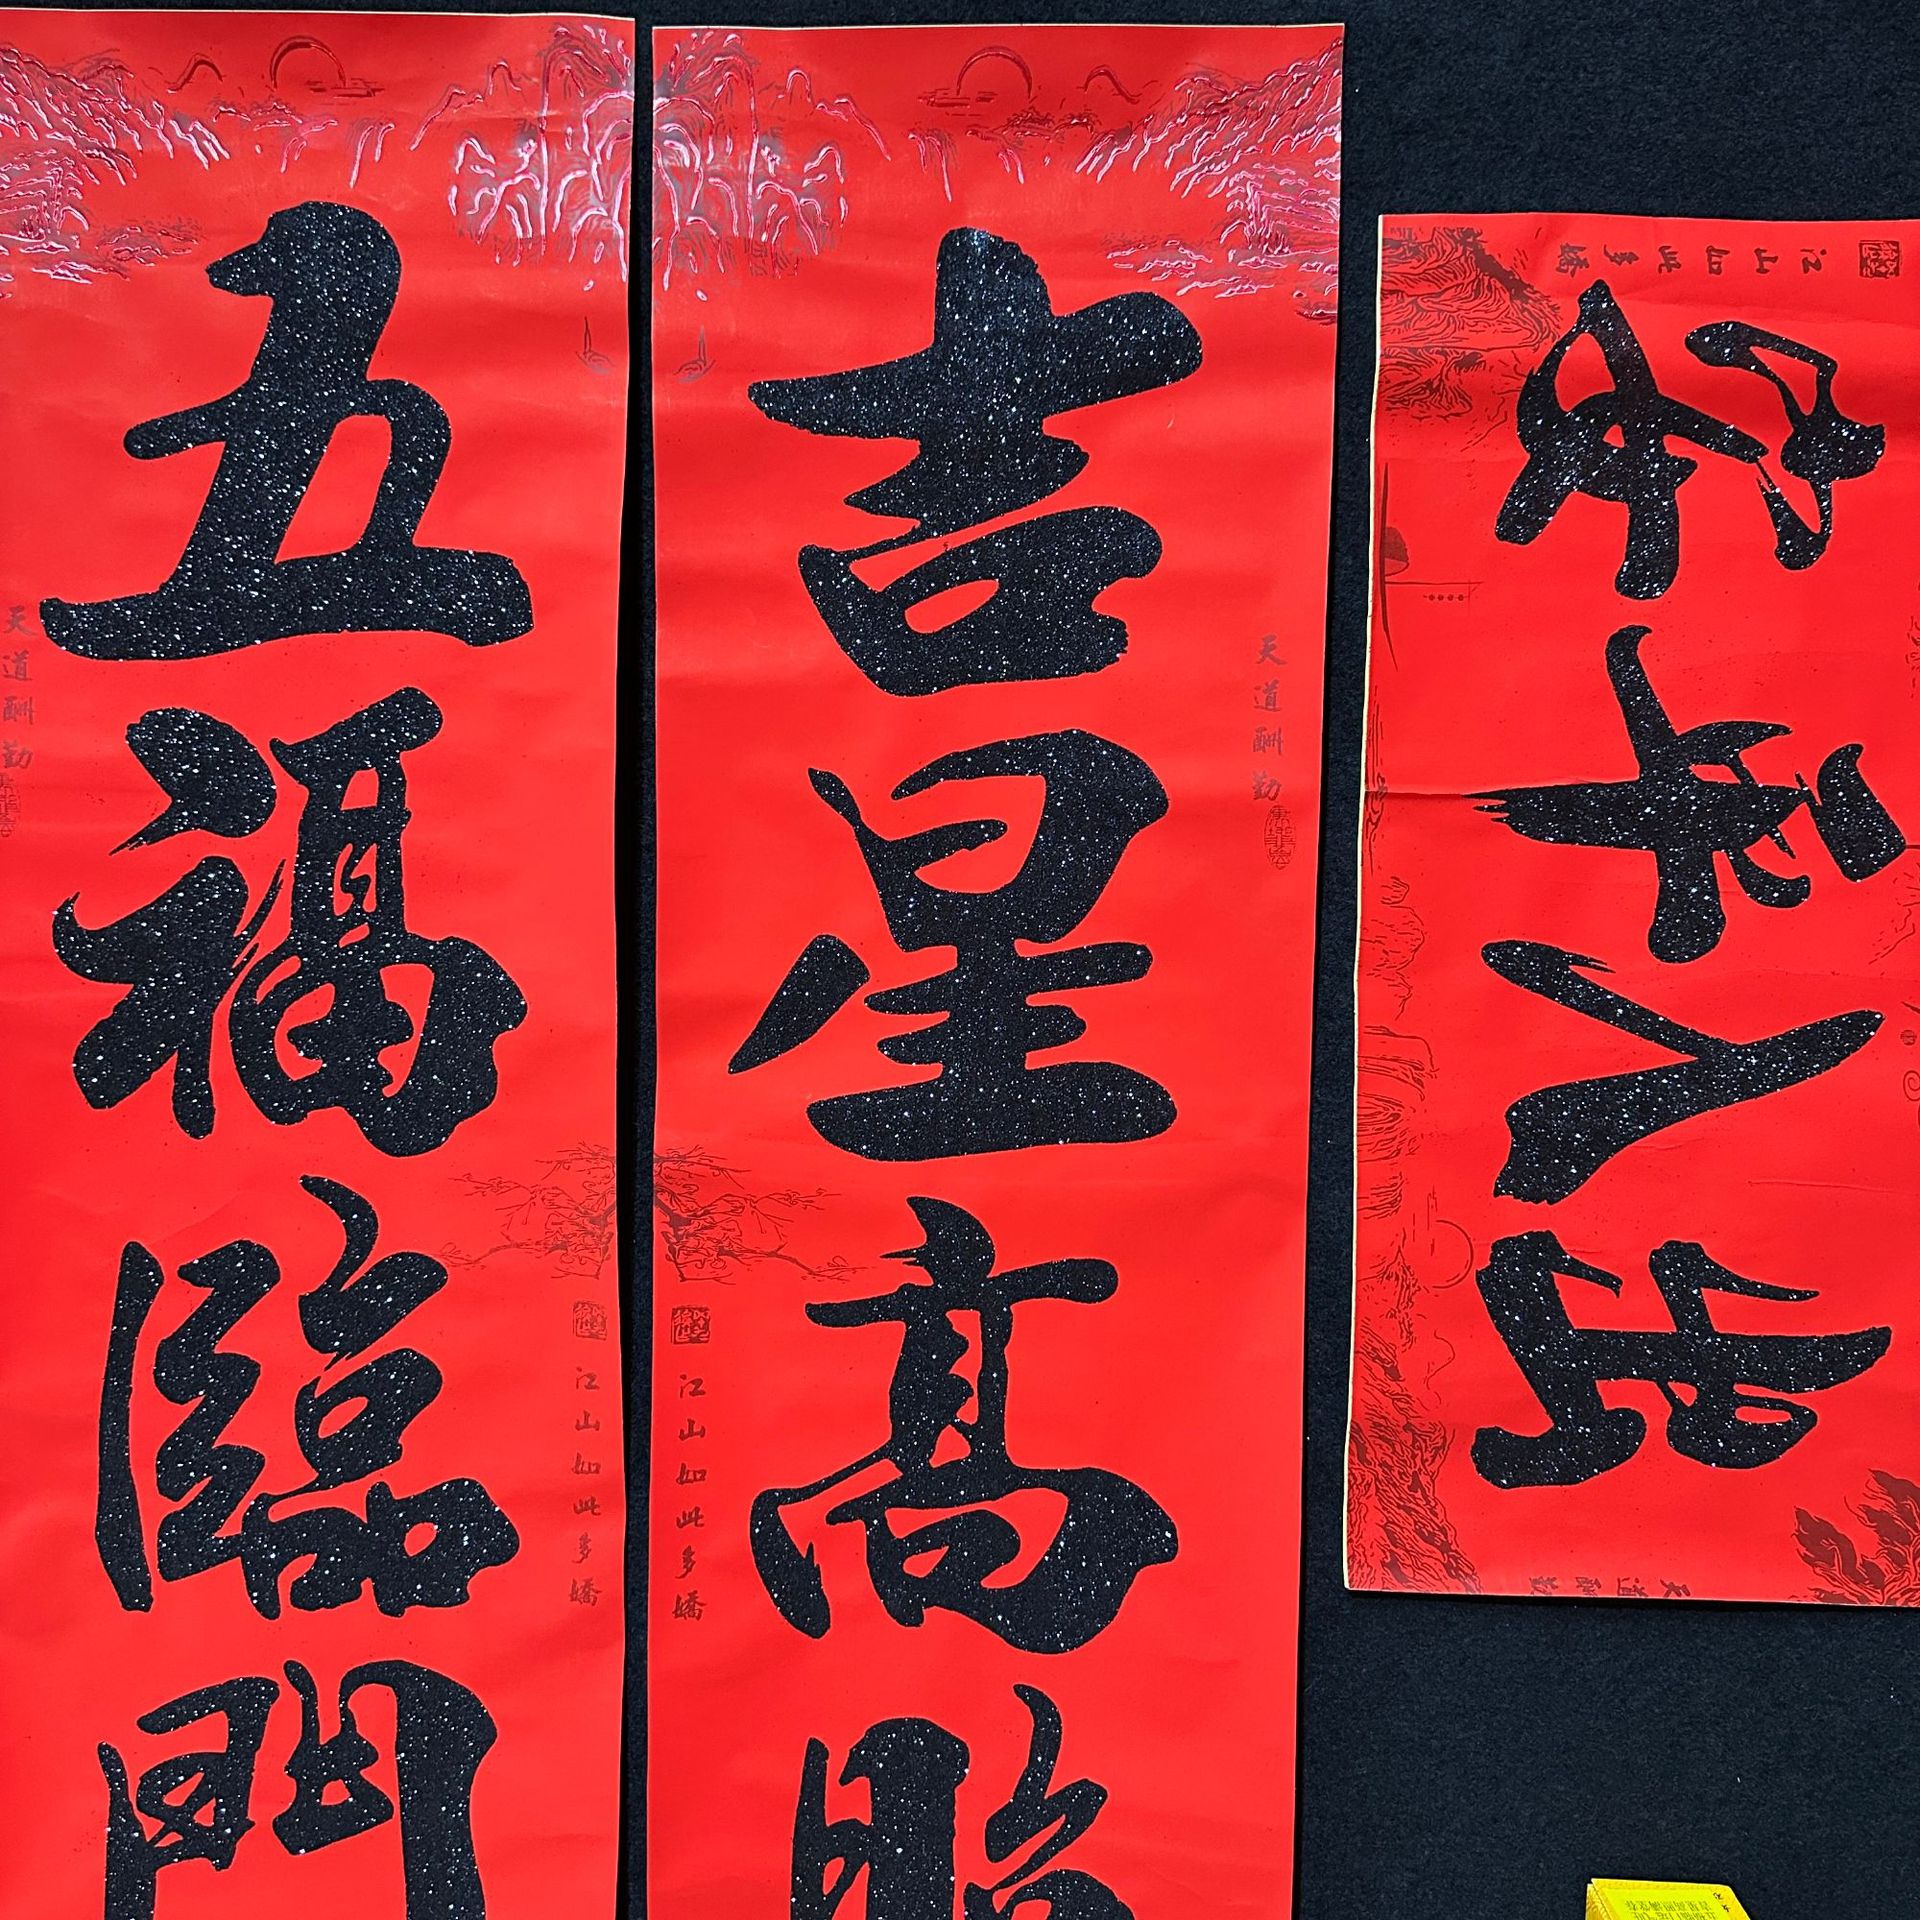 五福臨門
天道酬勤
江山如此多嬌
吉星高照
天道酬勤
江山如此多嬌
出入平安
江山如此多嬌
天道酬勤